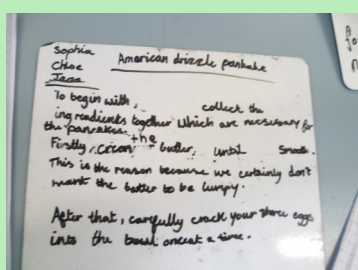 Sophia
Chloe
Jess
American drizzle pankake
To begin with, collect the
ingreadients together which are necessary for
the pancakes.
Firstly, cream the butter, until smooth.
This is the reason because we certainly don't
want the batter to be lumpy.
After that, carefully crack your three eggs
into the bowl oneat a time.